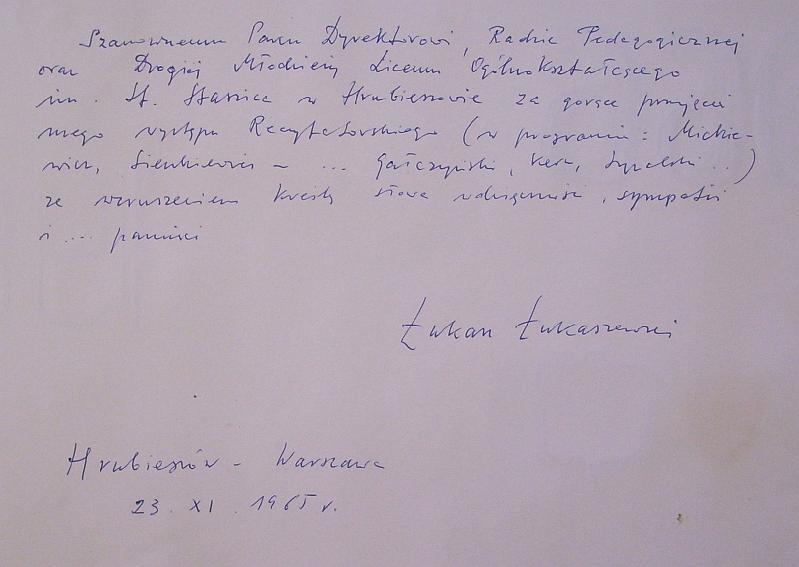 Szanownemu Panu Dyrektorowi, Radzie Pedagogicznej
oraz Drogiej Młodzieży Liceum Ogólnokształcącego
im. St. Staszica w Hrubieszowie za gorące przyjęcie
mego występu Recytatorskiego (w programie: Mickie-
wicz, Sienkiewicz – ... Gałczyński, Kern, ...)
ze wzruszeniem kreślę słowa wdzięczności, sympatii
i .... pamięci
Łukan Łukaszewski
Hrubieszów – Warszawa
23. XI. 1965 r.